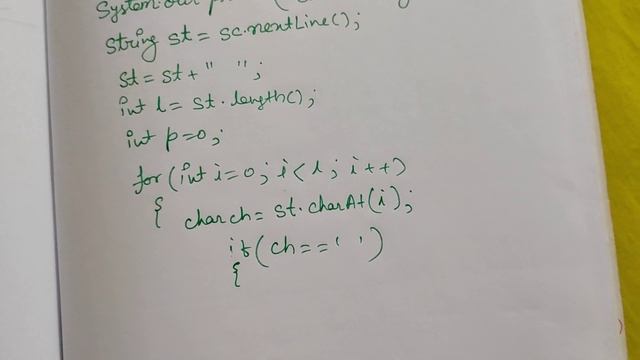 System.out.p
String st = sc.nextLine();
st = st + " ";
int l = st.length();
int p=0;
for(int i=0; i<l; i++)
{ char ch = st.charAt(i);
if(ch==' ')
{